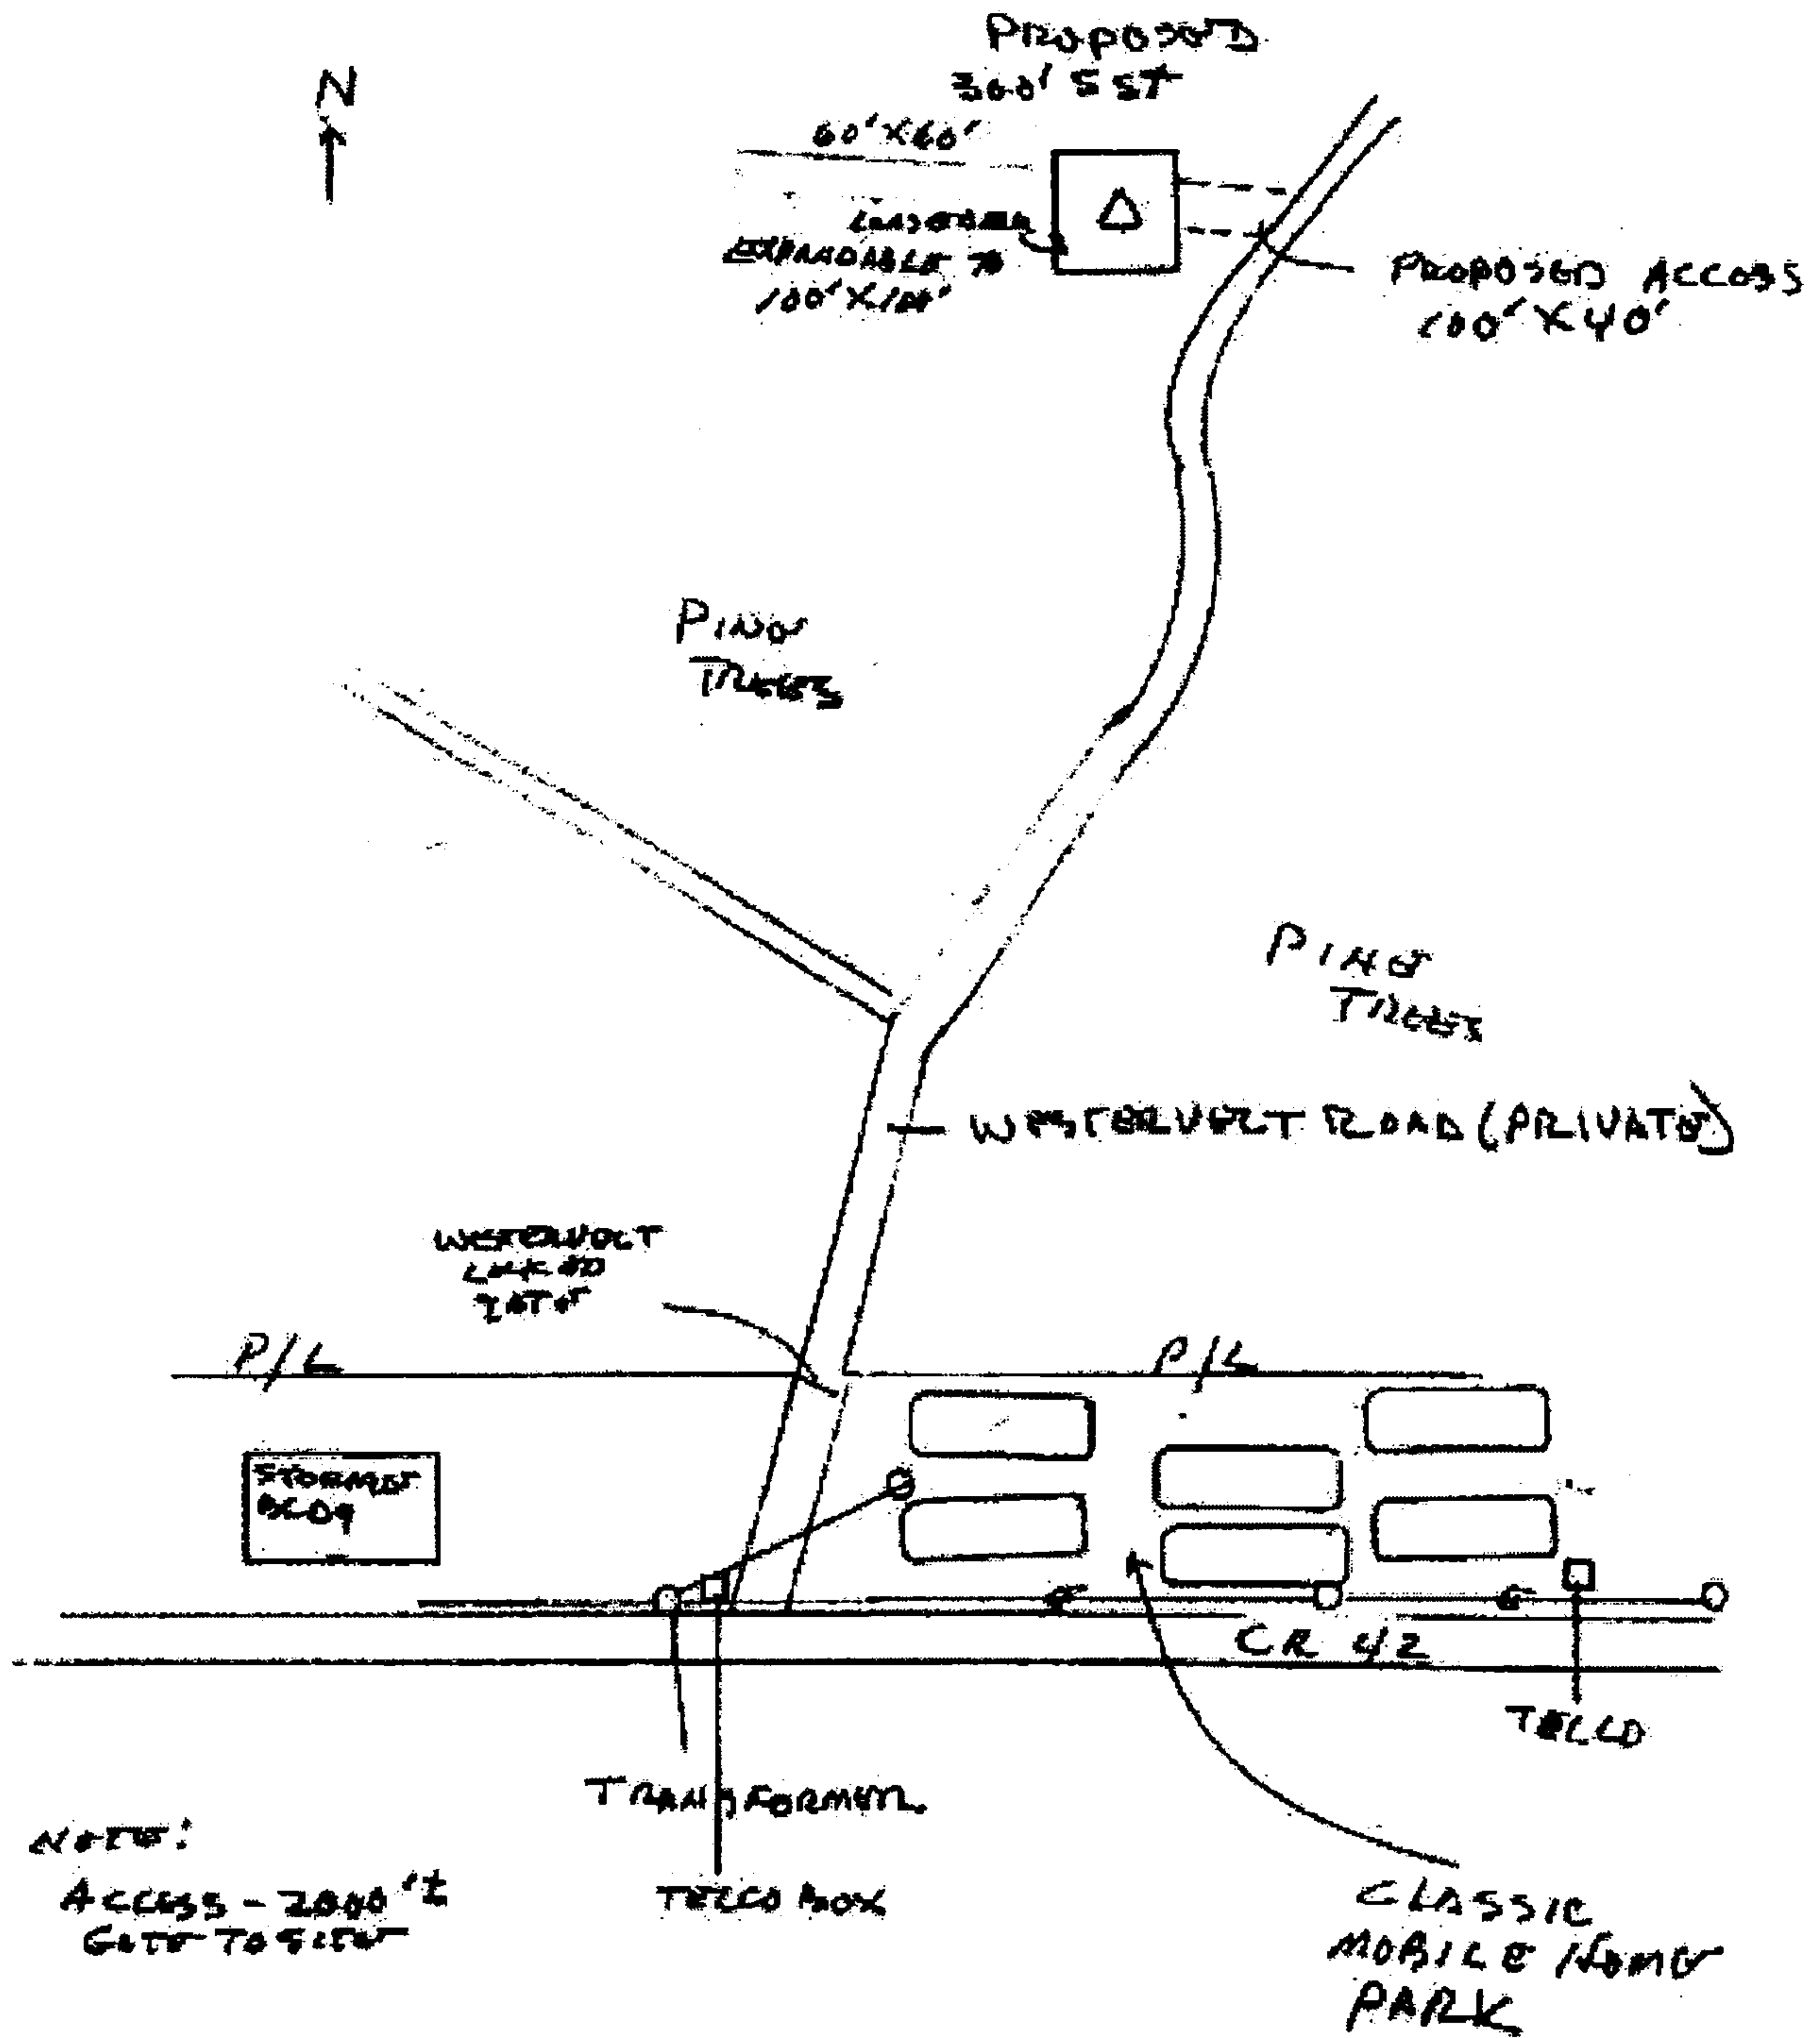 PROPOSED
300' SST
N
60' X 60'
EXPANDABLE TO
100' X 100'
PROPOSED ACCESS
100' X 40'
PINE
TREES
PINE
TREES
WESTERVELT ROAD (PRIVATE)
WESTERVELT
LOCKED
GATE
P/L
P/L
STORAGE
BLDG
CR 42
TELCO
TRANSFORMER
NOTE:
ACCESS - 2000' ±
GATE TO SITE
TELCO BOX
CLASSIC
MOBILE HOME
PARK